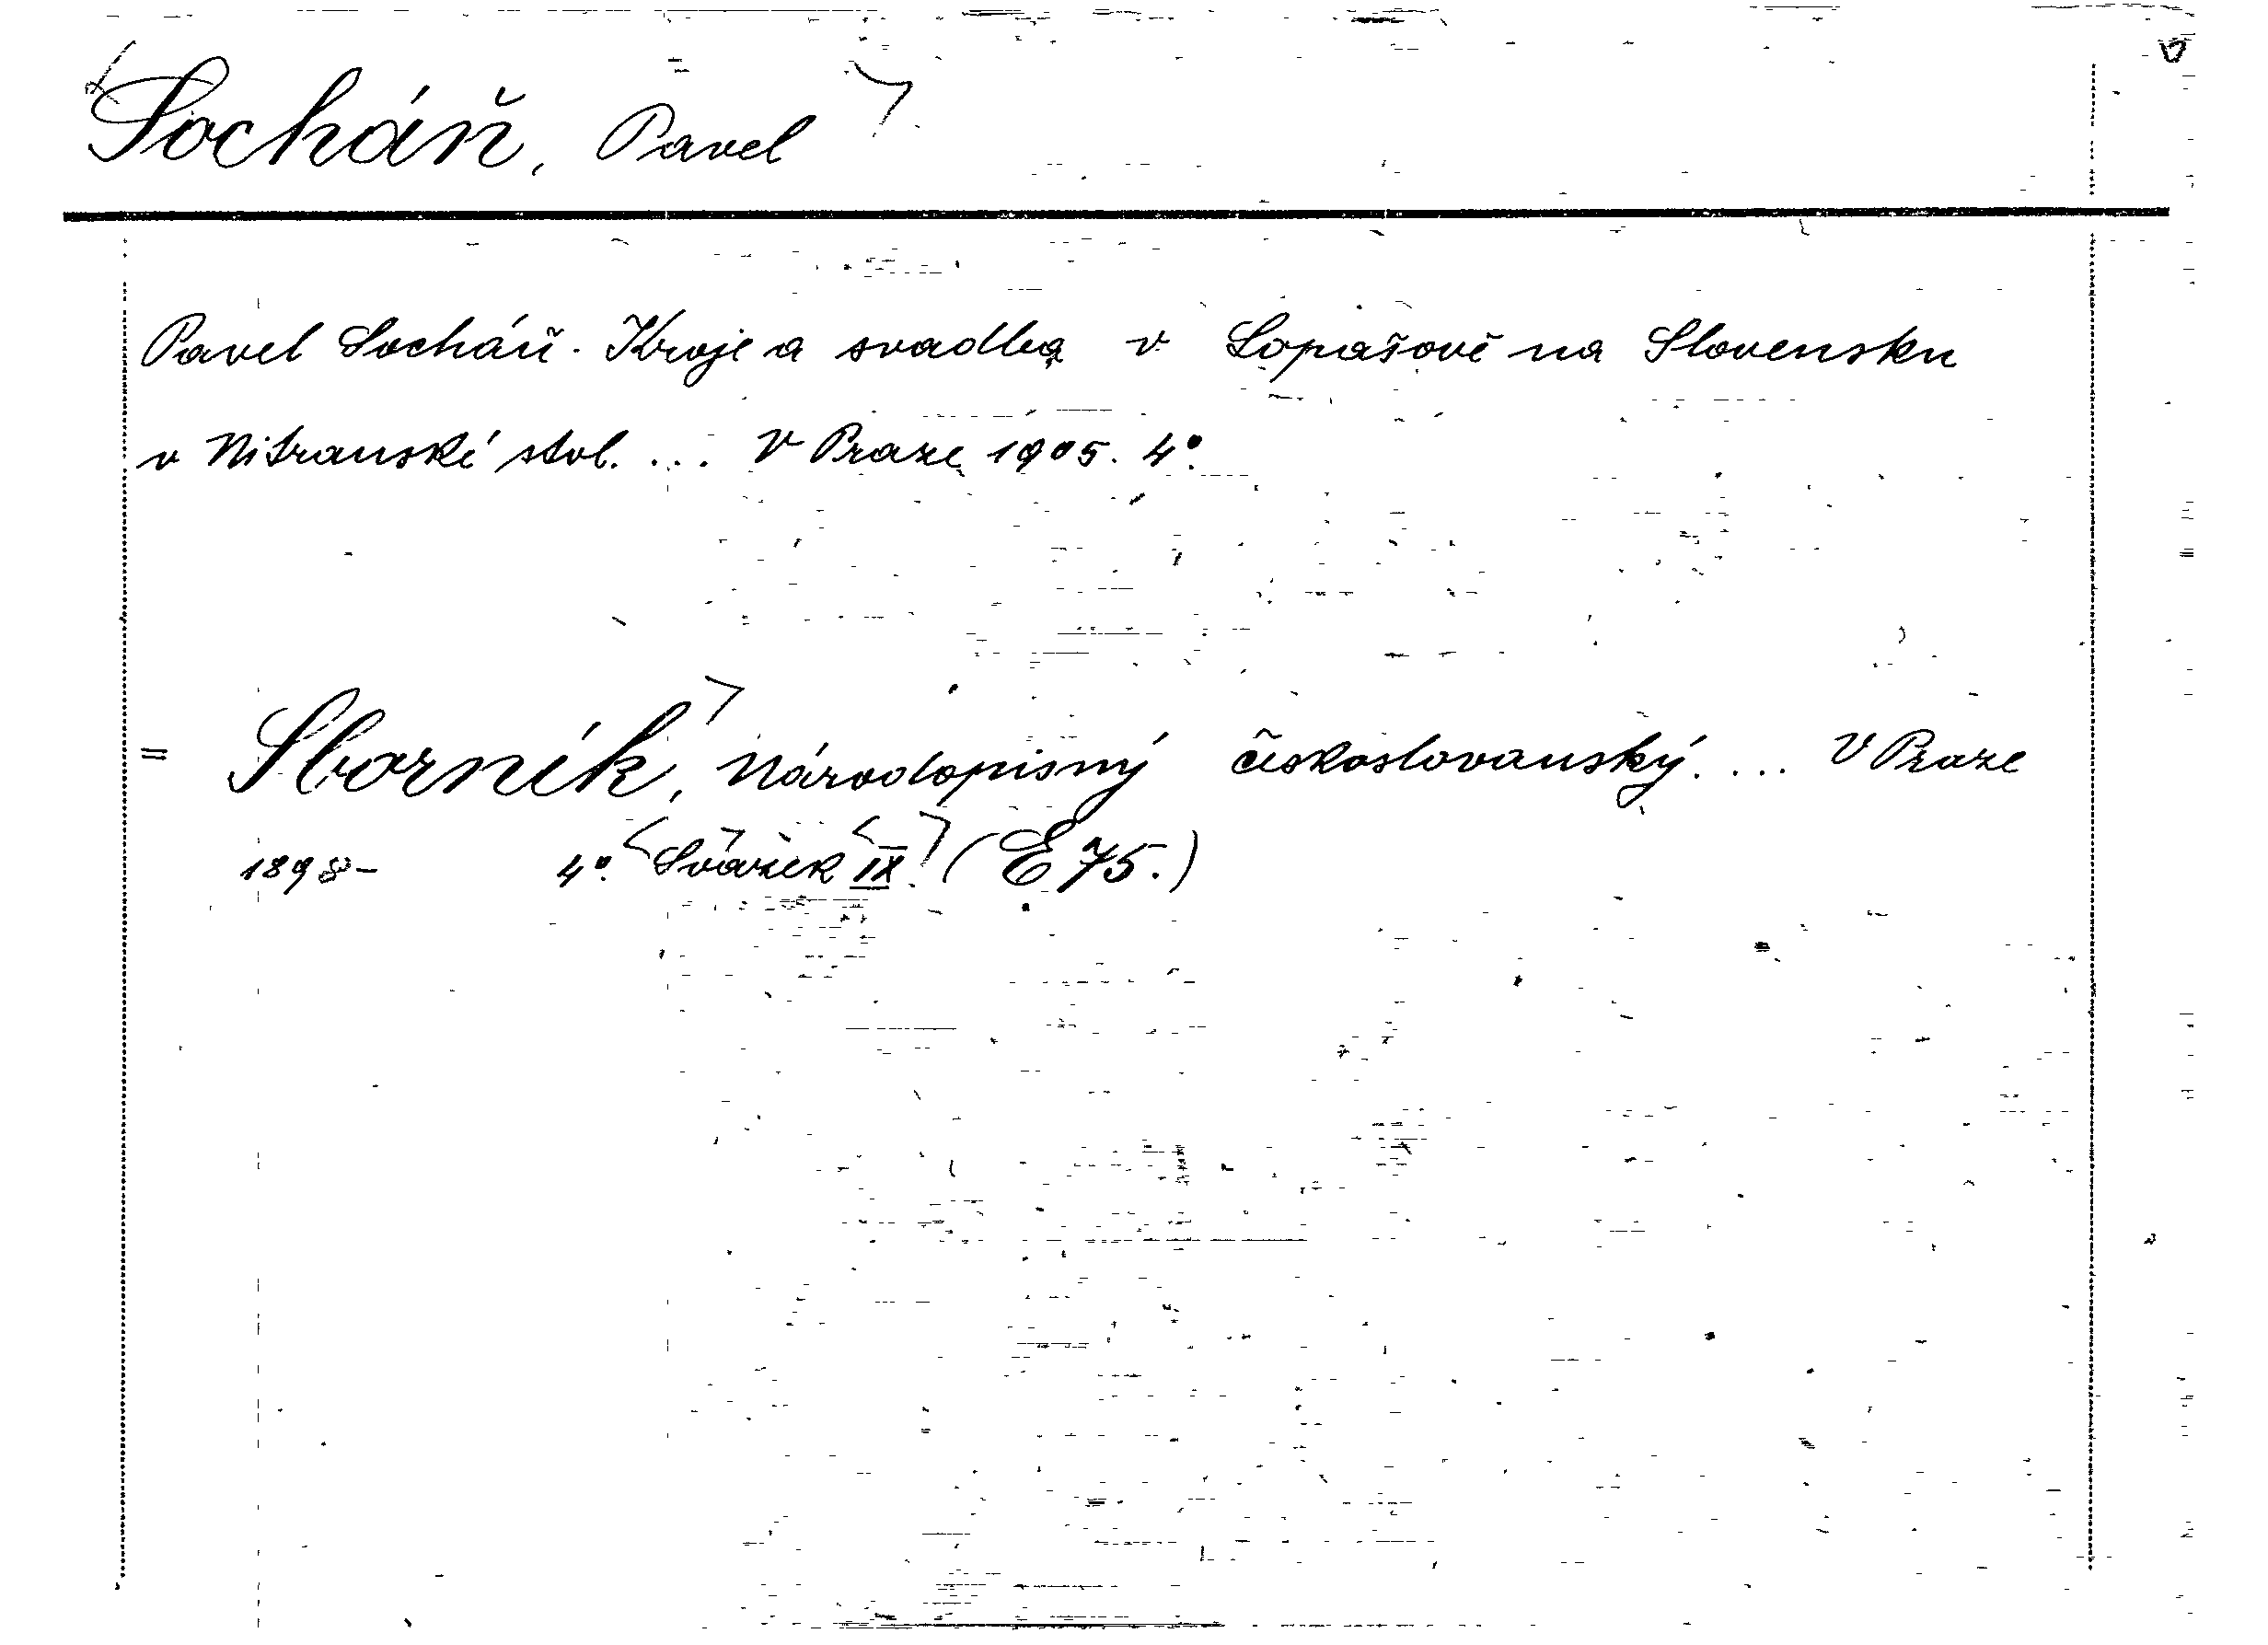 Socháň, Pavel
Pavel Socháň. Kroje a svadba v Lopašově na Slovensku
v Nitranské stol. ... V Praze 1905. 4°.
= Sborník, Národopisný českoslovanský. ... V Praze
1898- 4°. Svazek IX. (E 75.)